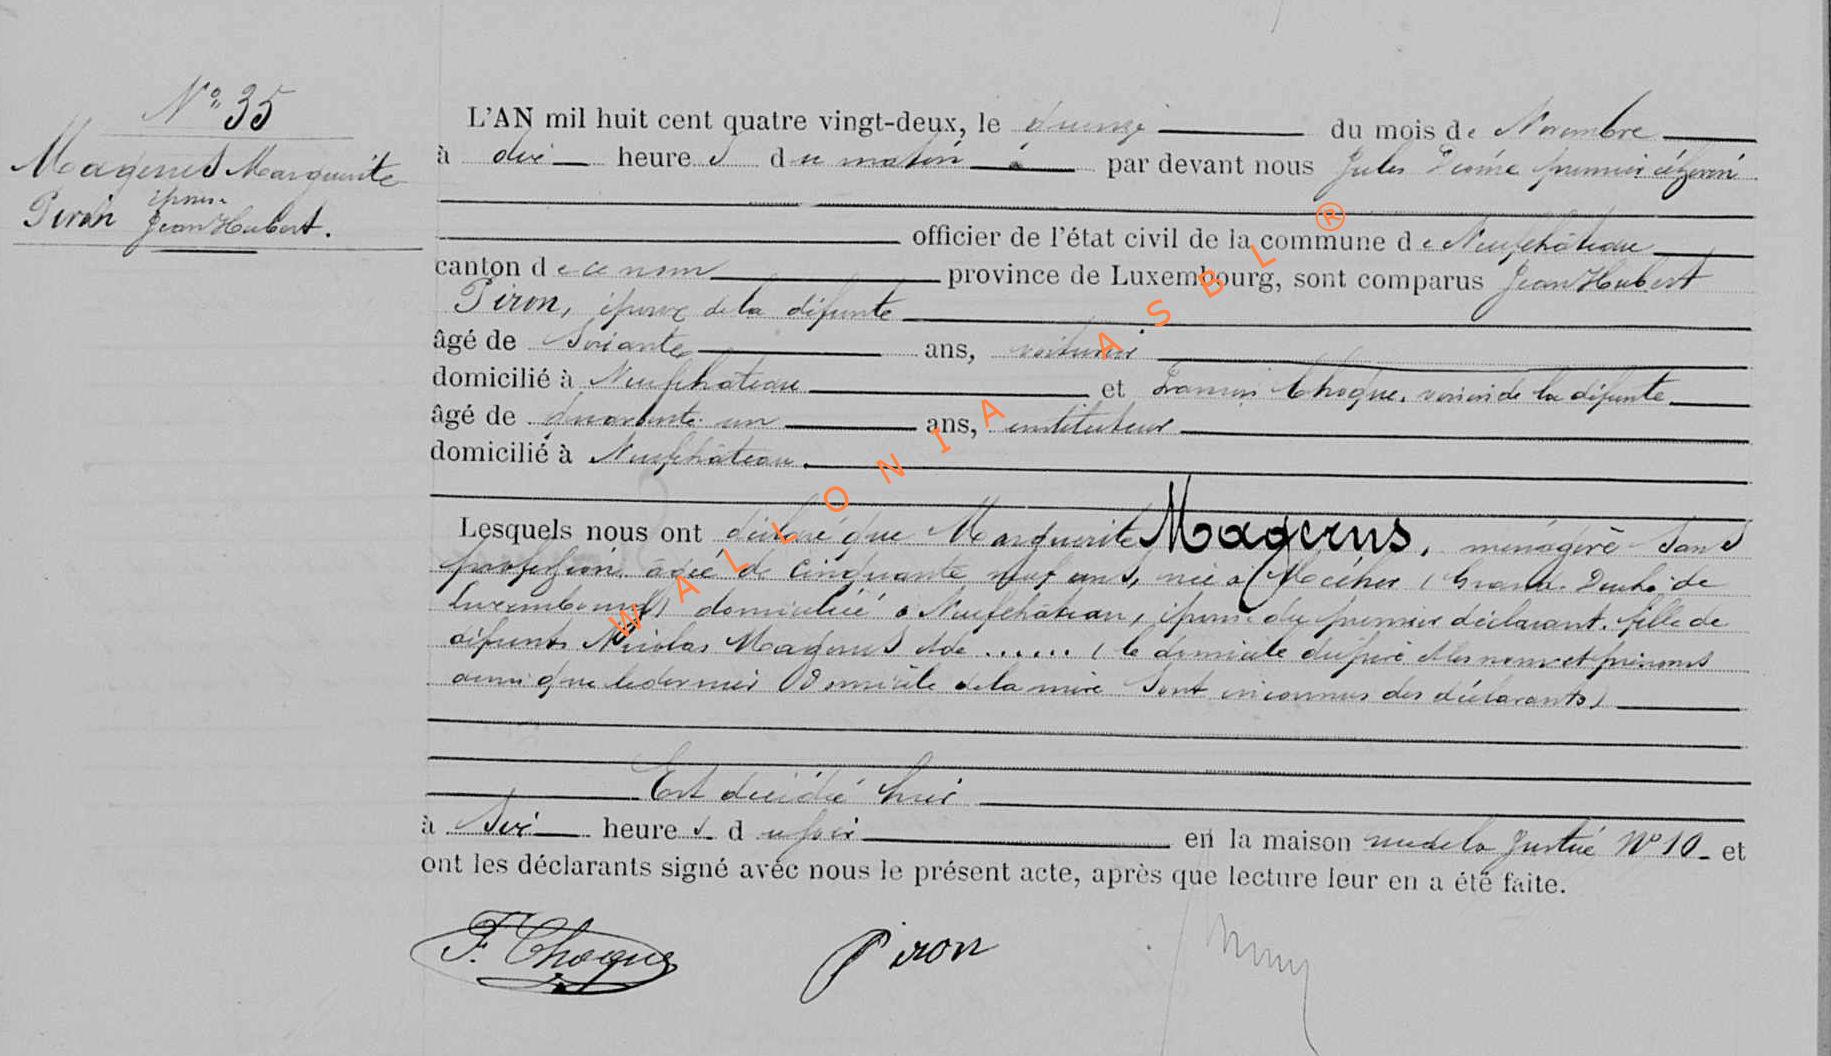 N° 35
Magerus Marguerite
épouse
Piron Jean Hubert.
L'AN mil huit cent quatre vingt-deux, le quinze du mois de Novembre
à dix heures du matin par devant nous Jules premier échevin
officier de l'état civil de la commune de Neufchâteau
canton de ce nom province de Luxembourg, sont comparus Jean Hubert
Piron, époux de la défunte
âgé de Soixante ans, voiturier
domicilié à Neufchâteau et François Choque, voisin de la défunte
âgé de quarante un ans, instituteur
domicilié à Neufchâteau.
Lesquels nous ont déclaré que Marguerite Magerus, ménagère Sans
profession, âgée de cinquante neuf ans, née à Mécher (Grand Duché de
Luxembourg) domiciliée à Neufchâteau, épouse du premier déclarant, fille de
défunts Nicolas Magerus et de ...... (le domicile du père et les nom et prénoms
ainsi que le dernier domicile de la mère Sont inconnus des déclarants)
Est décédée hier
à Six heures du soir en la maison rue de la Justice N° 10 et
ont les déclarants signé avec nous le présent acte, après que lecture leur en a été faite.
F. Choque Piron
WALLONIA ASBL ®